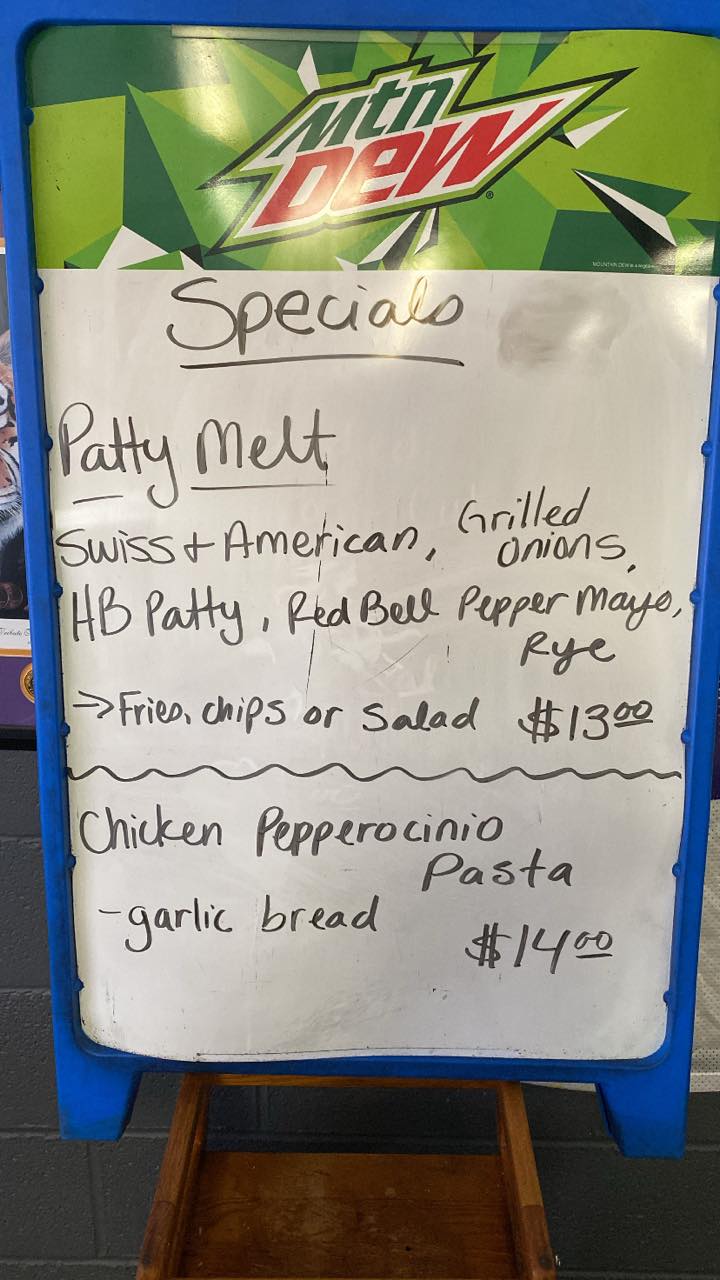 Mtn
DEW
®
Specials
Patty Melt
Swiss + American, Grilled onions,
HB Patty, Red Bell Pepper Mayo,
Rye
→ Fries, chips or salad $13.00
Chicken Pepperocinio
Pasta
- garlic bread
$14.00